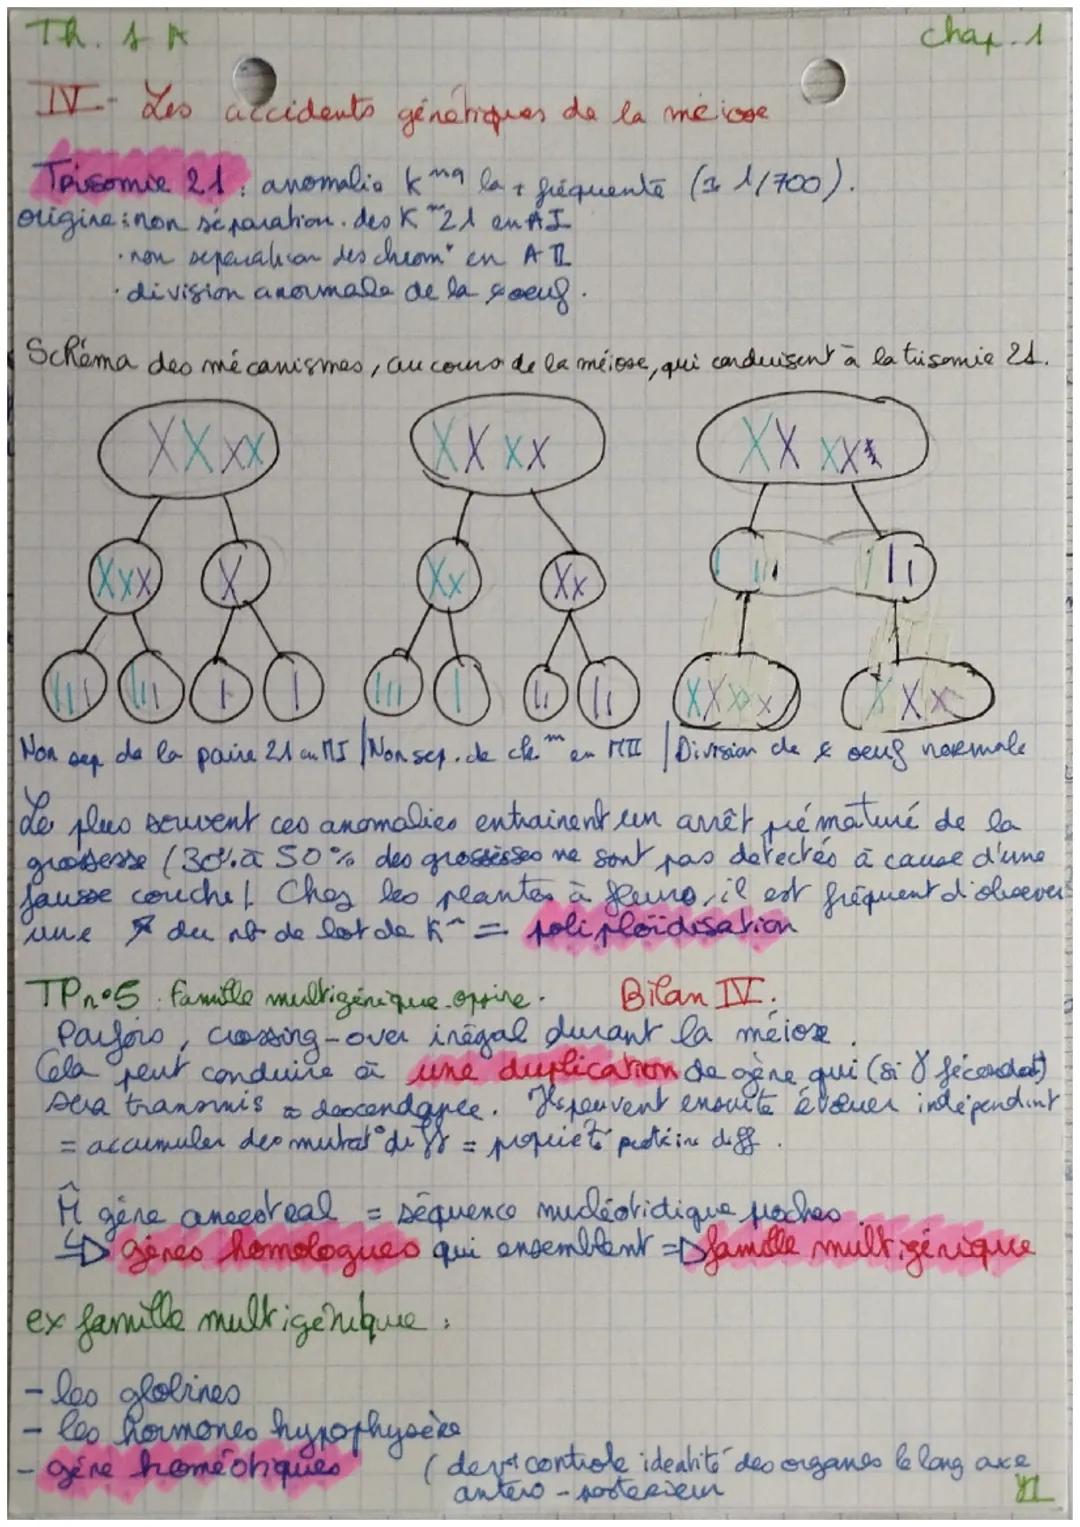 Th. 1 A
chap. 1
IV - Les accidents génétiques de la méiose
Trisomie 21 : anomalie K mq la + fréquente (1/700).
origine : non séparation des K m 21 en AI
· non separation des chrom° en A II
· division anormale de la oeuf.
Schéma des mécanismes, au cours de la méiose, qui conduisent à la trisomie 21.
Non sep de la paire 21 en MI / Non sep. de ch m en MII / Division de oeuf normale
Le plus souvent ces anomalies entrainent un arrêt prématuré de la
grossesse (30% à 50% des grossesses ne sont pas detectés à cause d'une
fausse couche ! Chez les plantes à fleurs, il est fréquent d'observer
une ↗ du nb de lot de K m = poliploïdisation
TP n°5 : famille multigénique opsine. Bilan IV.
Parfois, crossing-over inégal durant la méiose.
Cela peut conduire à une duplication de gène qui (si fécondat°)
sera transmis à descendance. Ils peuvent ensuite évoluer indépendint
= accumuler des mutat° diff = propriété protéine diff.
M̂ gène ancestral = séquence nucléotidique proches
↳ gènes homologues qui ensemblent => famille multigénique
ex famille multigénique :
- les globines
- les hormones hypophysère
- gène homéotiques (devt controle identité des organes le long axe
antero - posterieur